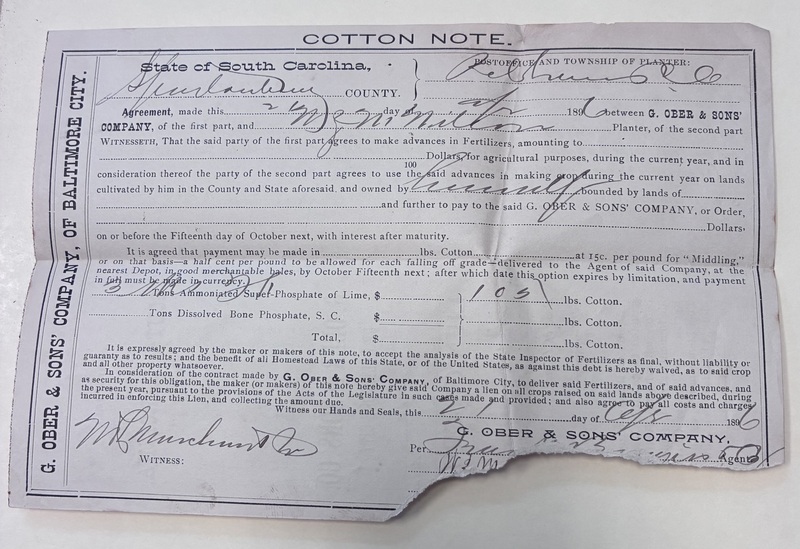 COTTON NOTE.
State of South Carolina,
POSTOFFICE AND TOWNSHIP OF PLANTER:
COUNTY.
Agreement, made this 2 day 1896 between G. OBER & SONS'
COMPANY, of the first part, and Planter, of the second part
WITNESSETH, That the said party of the first part agrees to make advances in Fertilizers, amounting to
Dollars, for agricultural purposes, during the current year, and in
100
consideration thereof the party of the second part agrees to use the said advances in making crop during the current year on lands
cultivated by him in the County and State aforesaid. and owned by himself bounded by lands of
and further to pay to the said G. OBER & SONS' COMPANY, or Order,
Dollars,
on or before the Fifteenth day of October next, with interest after maturity.
It is agreed that payment may be made in lbs. Cotton at 15c. per pound for "Middling,"
or on that basis—a half cent per pound to be allowed for each falling off grade—delivered to the Agent of said Company, at the
nearest Depot, in good merchantable bales, by October Fifteenth next; after which date this option expires by limitation, and payment
in full must be made in currency.
Tons Ammoniated Super-Phosphate of Lime, $ 105 lbs. Cotton.
Tons Dissolved Bone Phosphate, S. C. $ lbs. Cotton.
Total, $ lbs. Cotton.
It is expressly agreed by the maker or makers of this note, to accept the analysis of the State Inspector of Fertilizers as final, without liability or
guaranty as to results; and the benefit of all Homestead Laws of this State, or of the United States, as against this debt is hereby waived, as to said crop
and all other property whatsoever.
In consideration of the contract made by G. OBER & SONS' COMPANY, of Baltimore City, to deliver said Fertilizers, and of said advances, and
as security for this obligation, the maker (or makers) of this note hereby give said Company a lien on all crops raised on said lands above described, during
the present year, pursuant to the provisions of the Acts of the Legislature in such cases made and provided; and also agree to pay all costs and charges
incurred in enforcing this Lien, and collecting the amount due.
Witness our Hands and Seals, this 2 day of Apr 1896
G. OBER & SONS' COMPANY,
Per Agents
WITNESS:
G. OBER & SONS' COMPANY, OF BALTIMORE CITY.